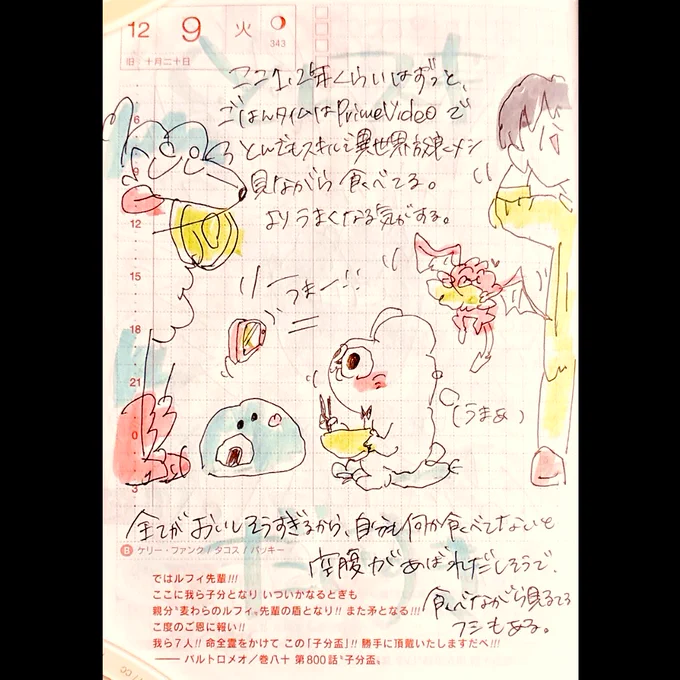 12 9 火
343
旧 十月二十日
ここ1,2年くらいはずっと、
ごはんタイムはPrimeVideoで
とんでもスキルで異世界放浪メシ
見ながら食べてる。
よりうまくなる気がする。
6
9
12
15
18
21
0
3
うまー!!
(うまぁ)
全てがおいしそうすぎるから、自分も何か食べてないと
空腹があばれだしそうで、
食べながら見てる
フシもある。
B ケリー・ファンク / タコス / バッキー
ではルフィ先輩!!!
ここに我ら子分となり いついかなるときも
親分“麦わらのルフィ〟先輩の盾となり!! また矛となる!!!
こ度のご恩に報い!!
我ら7人!! 命全霊をかけて この「子分盃」!! 勝手に頂戴いたしますだべ!!!
―― バルトロメオ/巻八十 第800話“子分盃〟